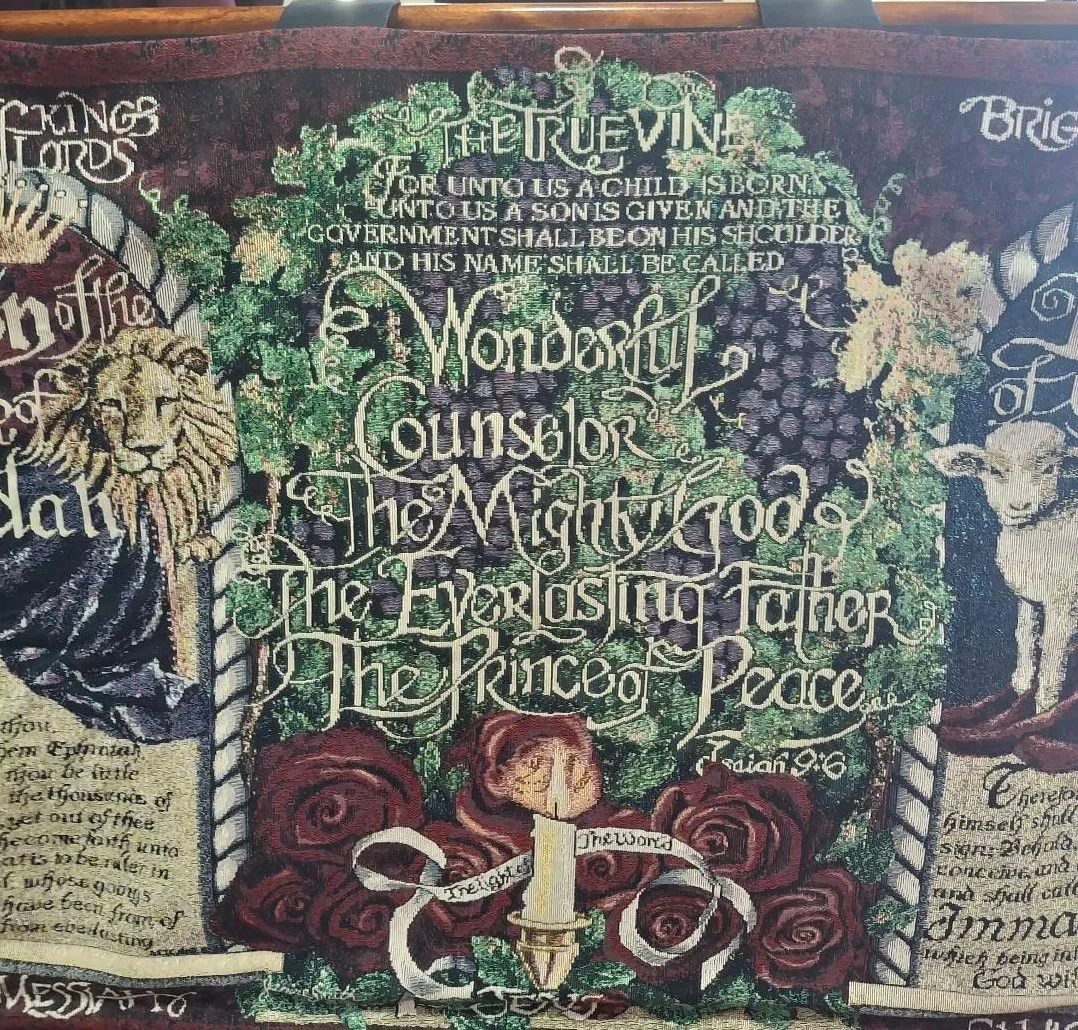 KINGS
LORDS
of the
of
dah
thou,
hem Ephratah,
thou be little
the thousands of
yet out of thee
he come forth unto
at is to be ruler in
whose goings
have been from of
from everlasting
MESSIAH
THE TRUE VINE
FOR UNTO US A CHILD IS BORN,
UNTO US A SON IS GIVEN AND THE
GOVERNMENT SHALL BE ON HIS SHOULDER
AND HIS NAME SHALL BE CALLED
Wonderful
Counselor
The Mighty God
The Everlasting Father
The Prince of Peace
Isaiah 9:6
The light of
The World
JESUS
BRIG
of
Therefo
himself shall
sign: Behold,
conceive, and
and shall call
Imma
which being in
God wi